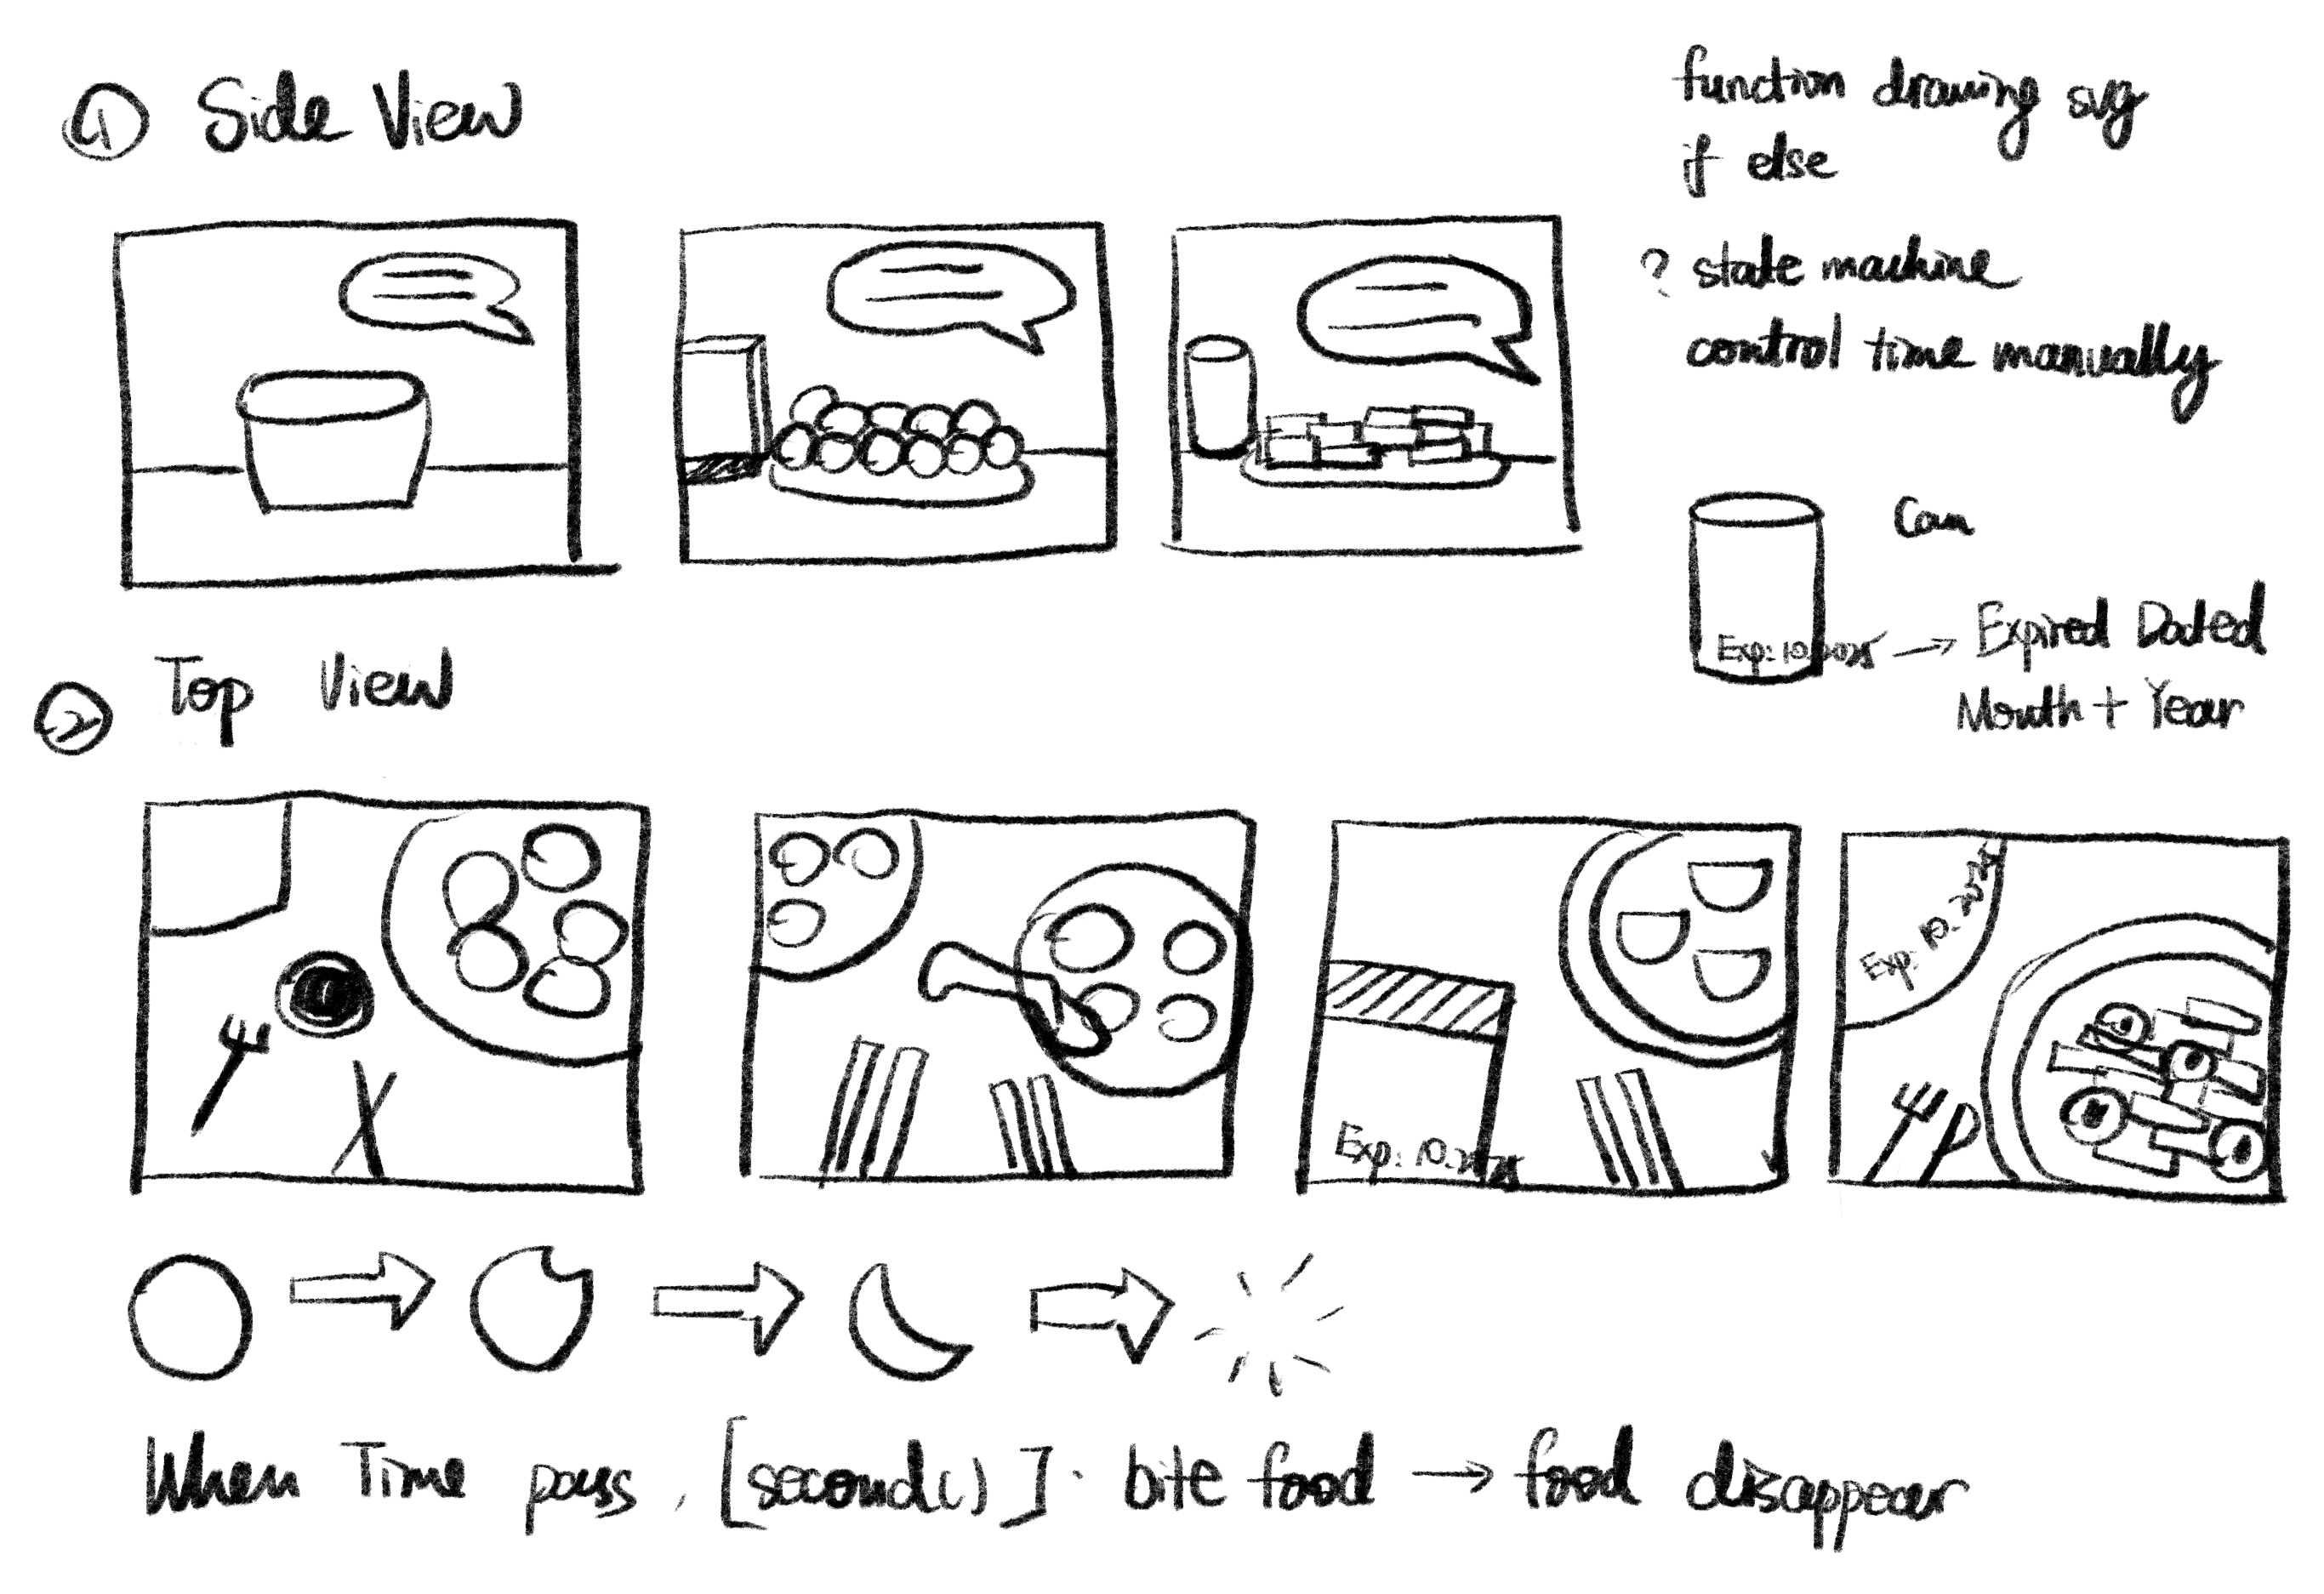 ① Side View
function drawing svg
if else
? state machine
control time manually
Can
Exp: 10.2025 → Expired Dated
Month + Year
② Top View
Exp: 10.2025
Exp: 10.2025
When Time pass, [second()]. bite food → food disappear